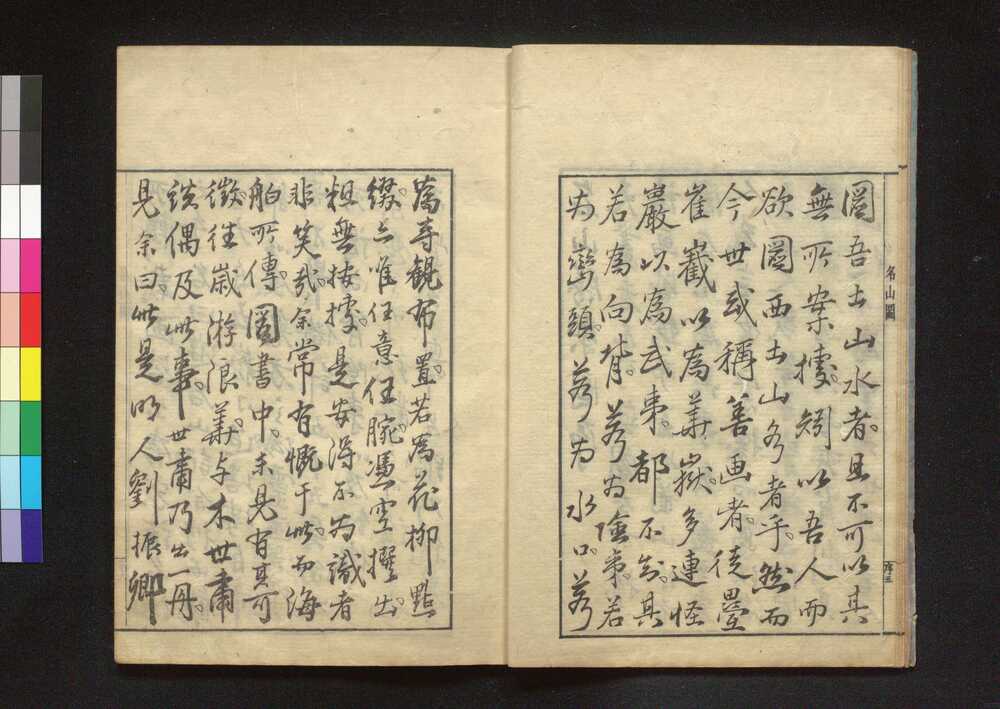 圖吾土山水者。且不可以其
無所案據。矧以吾人而
欲圖西土山水者乎。然而
今世或稱善画者。徒壘
崔嶻以為華嶽。多連怪
巖以為武夷。都不知其
若為向背。若為陰夷。若
为巒頭。若为水口。若
名山圖
序三
為寺観布置。若為花柳點
綴。只唯任意任腕。憑空撰出
粗無按據。是安得不为識者
非笑哉。余常有慨于此。而海
舶所傳。圖書中。未見有其可
徵。往歳游浪華。与木世肅
談偶及此事。世肅乃出一册
見余曰。此是明人劉振卿